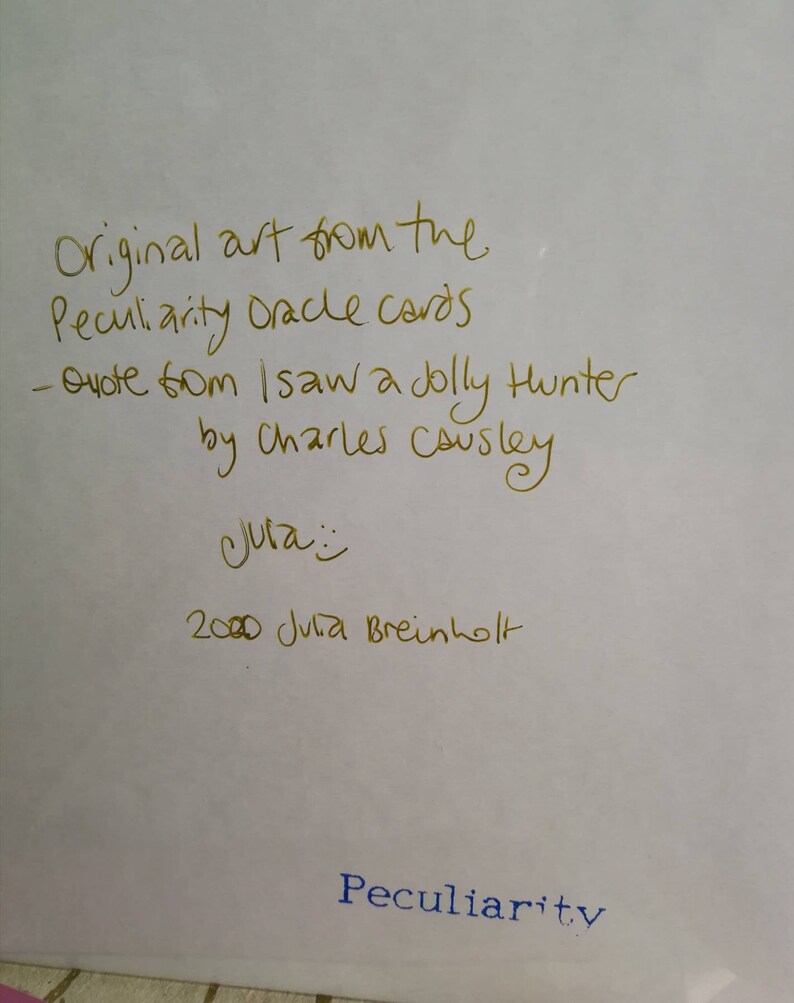 Original art from the
Peculiarity Oracle cards
- Quote from I saw a Jolly Hunter
by Charles Causley
Julia :)
2020 Julia Breinholt
Peculiarity